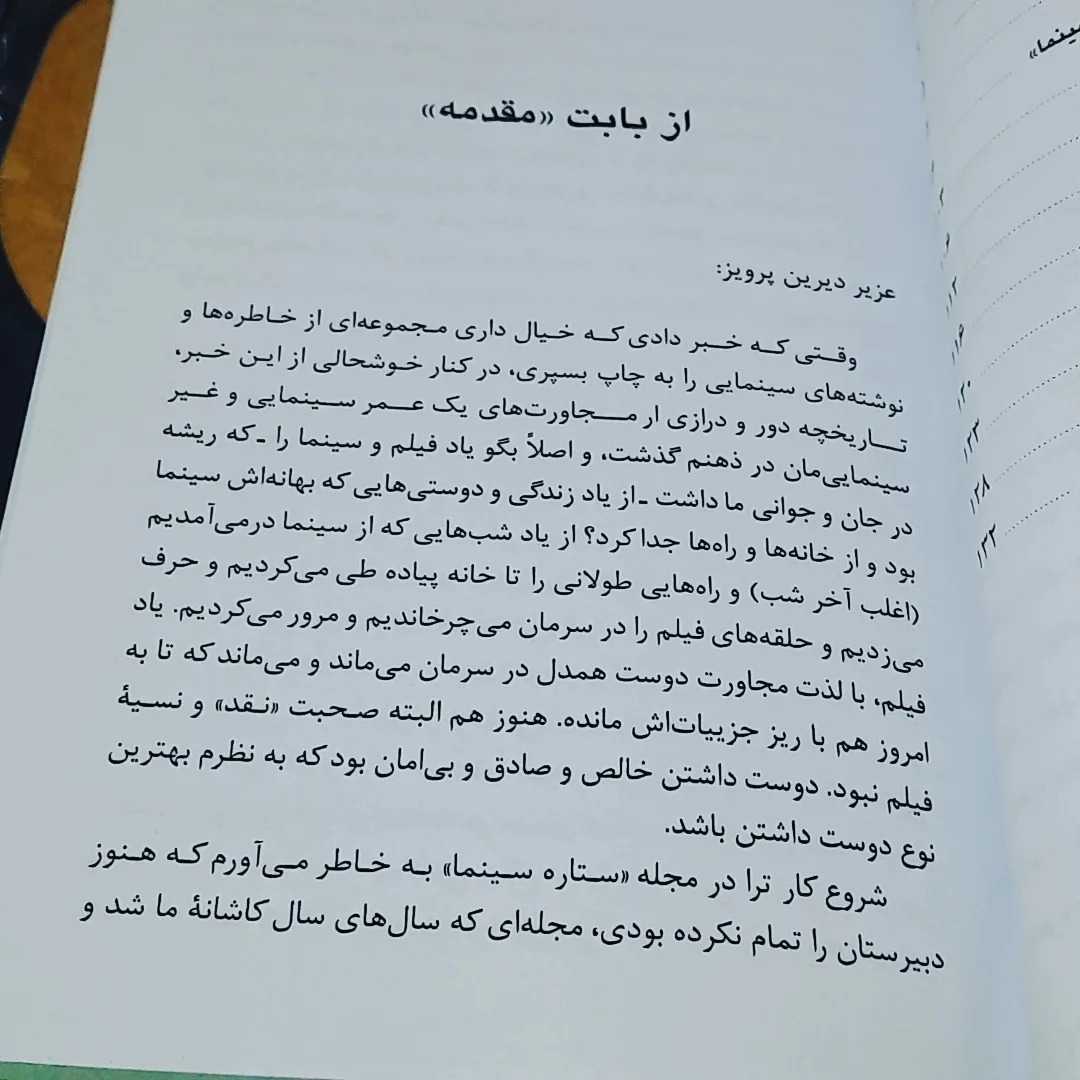 از بابت «مقدمه»
عزیر دیرین پرویز:
وقتی که خبر دادی که خیال داری مجموعه‌ای از خاطره‌ها و
نوشته‌های سینمایی را به چاپ بسپری، در کنار خوشحالی از این خبر،
تاریخچه دور و درازی ار مجاورت‌های یک عمر سینمایی و غیر
سینمایی‌مان در ذهنم گذشت، و اصلاً بگو یاد فیلم و سینما را ـ که ریشه
در جان و جوانی ما داشت ـ از یاد زندگی و دوستی‌هایی که بهانه‌اش سینما
بود و از خانه‌ها و راه‌ها جدا کرد؟ از یاد شب‌هایی که از سینما درمی‌آمدیم
(اغلب آخر شب) و راه‌هایی طولانی را تا خانه پیاده طی می‌کردیم و حرف
می‌زدیم و حلقه‌های فیلم را در سرمان می‌چرخاندیم و مرور می‌کردیم. یاد
فیلم، با لذت مجاورت دوست همدل در سرمان می‌ماند و می‌ماند که تا به
امروز هم با ریز جزییات‌اش مانده. هنوز هم البته صحبت «نقد» و نسیۀ
فیلم نبود. دوست داشتن خالص و صادق و بی‌امان بود که به نظرم بهترین
نوع دوست داشتن باشد.
شروع کار ترا در مجله «ستاره سینما» به خاطر می‌آورم که هنوز
دبیرستان را تمام نکرده بودی، مجله‌ای که سال‌های سال کاشانۀ ما شد و
سینما»
۱۱۲
۱۱۶
۱۲۰
۱۲۳
۱۲۸
۱۳۲